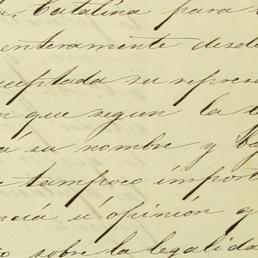 Catalina para
enteramente desde
ceptada su repres
n que segun la
a su nombre y
tampoco import
ncia ú opinión q
sobre la legalida